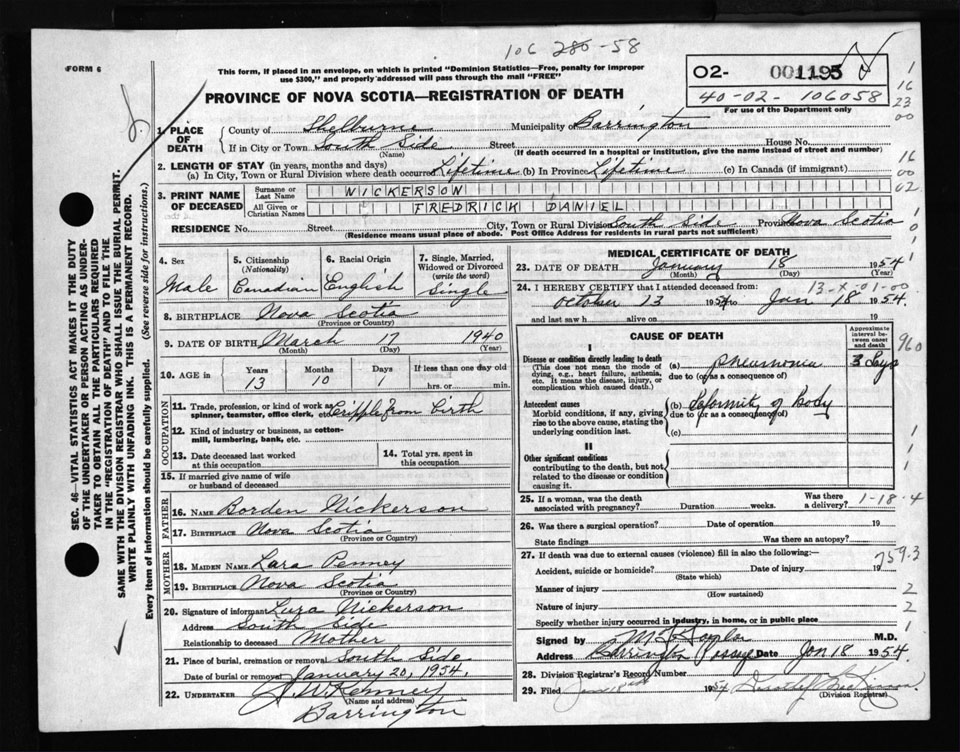 106 280-58
FORM 6
This form, if placed in an envelope, on which is printed "Dominion Statistics—Free, penalty for improper
use $300," and properly addressed will pass through the mail "FREE"
02- 001195
40-02- 106058
For use of the Department only
PROVINCE OF NOVA SCOTIA—REGISTRATION OF DEATH
1. PLACE OF DEATH
County of Shelburne Municipality of Barrington
If in City or Town South Side Street House No.
(Name) (If death occurred in a hospital or institution, give the name instead of street and number)
2. LENGTH OF STAY (in years, months and days)
(a) In City, Town or Rural Division where death occurred Lifetime (b) In Province Lifetime (c) In Canada (if immigrant)
3. PRINT NAME OF DECEASED
Surname or Last Name NICKERSON
All Given or Christian Names FREDRICK DANIEL
RESIDENCE No. Street City, Town or Rural Division South Side Province Nova Scotia
(Residence means usual place of abode. Post Office Address for residents in rural parts not sufficient)
4. Sex Male
5. Citizenship (Nationality) Canadian
6. Racial Origin English
7. Single, Married, Widowed or Divorced (write the word) Single
8. BIRTHPLACE Nova Scotia
(Province or Country)
9. DATE OF BIRTH March 17 1940
(Month) (Day) (Year)
10. AGE in Years Months Days If less than one day old
13 10 1 hrs. or min.
OCCUPATION
11. Trade, profession, or kind of work as spinner, teamster, office clerk, Cripple from birth
12. Kind of industry or business, as cotton-mill, lumbering, bank, etc.
13. Date deceased last worked at this occupation
14. Total yrs. spent in this occupation
15. If married give name of wife or husband of deceased
FATHER
16. NAME Borden Nickerson
17. BIRTHPLACE Nova Scotia
(Province or Country)
MOTHER
18. MAIDEN NAME Lara Penney
19. BIRTHPLACE Nova Scotia
(Province or Country)
20. Signature of informant Lura Nickerson
Address South Side
Relationship to deceased Mother
21. Place of burial, cremation or removal South Side
Date of burial or removal January 20, 1954.
22. UNDERTAKER
(Name and address)
Barrington
MEDICAL CERTIFICATE OF DEATH
23. DATE OF DEATH January 18 1954
(Month) (Day) (Year)
24. I HEREBY CERTIFY that I attended deceased from: 13-X-01-00
October 13 1954 to Jan 18 1954.
and last saw h alive on 19
CAUSE OF DEATH
Approximate interval between onset and death
I
Disease or condition directly leading to death
(This does not mean the mode of dying, e.g., heart failure, asthenia, etc. It means the disease, injury, or complication which caused death.)
(a) pneumonia 3 days
due to (or as a consequence of)
Antecedent causes
Morbid conditions, if any, giving rise to the above cause, stating the underlying condition last.
(b) deformit of body
due to (or as a consequence of)
(c)
II
Other significant conditions
contributing to the death, but not related to the disease or condition causing it.
25. If a woman, was the death associated with pregnancy? Duration weeks. Was there a delivery? 1-18-4
26. Was there a surgical operation? Date of operation 19
State findings Was there an autopsy?
27. If death was due to external causes (violence) fill in also the following:
Accident, suicide or homicide? Date of injury 19
(State which)
759.3
Manner of injury 2
(How sustained)
Nature of injury 2
Specify whether injury occurred in industry, in home, or in public place
Signed by M.D.
Address Barrington Passage Date Jan 18 1954.
28. Division Registrar's Record Number
29. Filed 1954
(Division Registrar)
SEC. 46—VITAL STATISTICS ACT MAKES IT THE DUTY
OF THE UNDERTAKER OR PERSON ACTING AS UNDER-
TAKER TO OBTAIN ALL THE PARTICULARS REQUIRED
IN THE "REGISTRATION OF DEATH" AND TO FILE THE
SAME WITH THE DIVISION REGISTRAR WHO SHALL ISSUE THE BURIAL PERMIT.
WRITE PLAINLY WITH UNFADING INK. THIS IS A PERMANENT RECORD.
Every item of information should be carefully supplied. (See reverse side for instructions.)
1
16
23
00
16
00
02
960